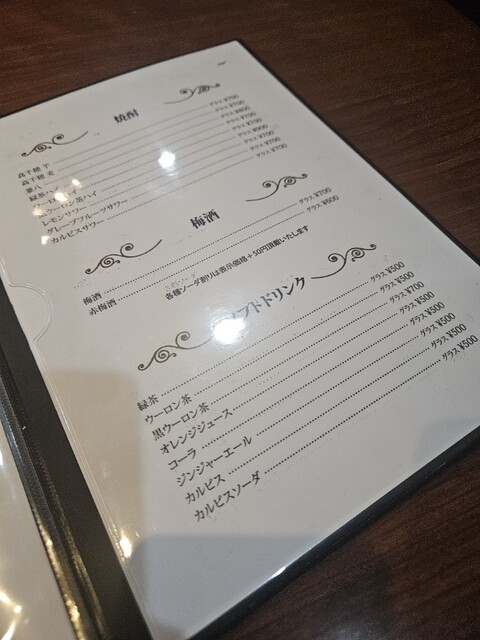 焼酎
高千穂 芋 グラス ¥700
高千穂 麦 グラス ¥700
兼八 グラス ¥800
緑茶ハイ グラス ¥700
ウーロンハイ グラス ¥700
黒ウーロン茶ハイ グラス ¥900
レモンサワー グラス ¥700
グレープフルーツサワー グラス ¥700
カルピスサワー グラス ¥700
梅酒
梅酒 グラス ¥700
赤梅酒 グラス ¥800
各種ソーダ割りは表示価格+50円頂戴いたします
ソフトドリンク
緑茶 グラス ¥500
ウーロン茶 グラス ¥500
黒ウーロン茶 グラス ¥700
オレンジジュース グラス ¥500
コーラ グラス ¥500
ジンジャーエール グラス ¥500
カルピス グラス ¥500
カルピスソーダ グラス ¥500